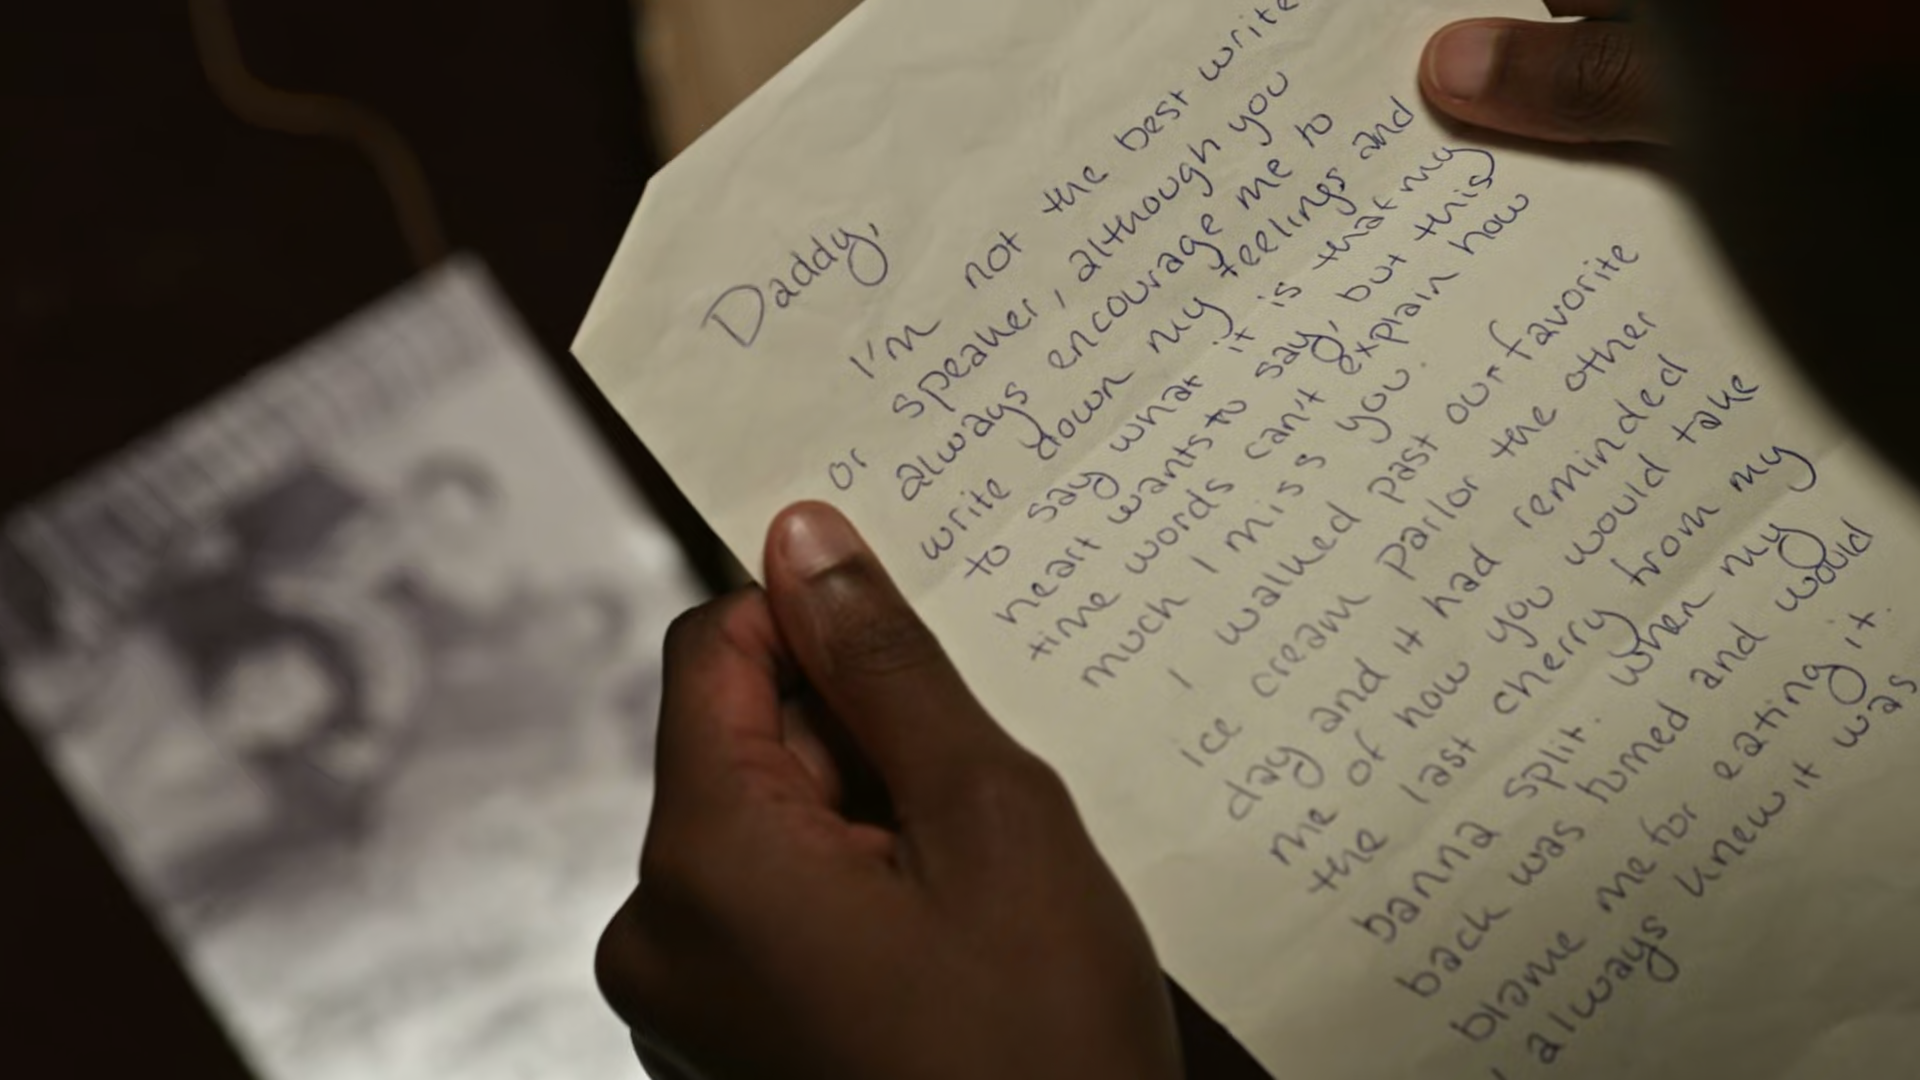 Daddy,
I'm not the best write
or speaker, although you
always encourage me to
write down my feelings and
to say what it is that my
heart wants to say, but this
time words can't explain how
much I miss you.
I walked past our favorite
ice cream parlor the other
day and it had reminded
me of how you would take
the last cherry from my
banna split. when my
back was turned and would
blame me for eating it.
I always knew it was